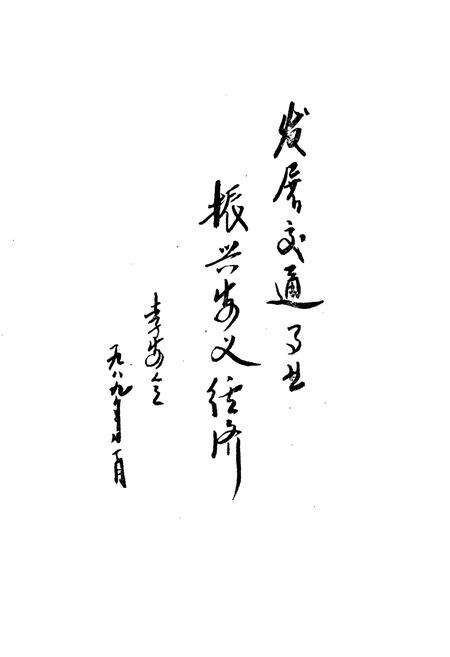 发展交通事业
振兴安义经济
李安
一九八九年十一月